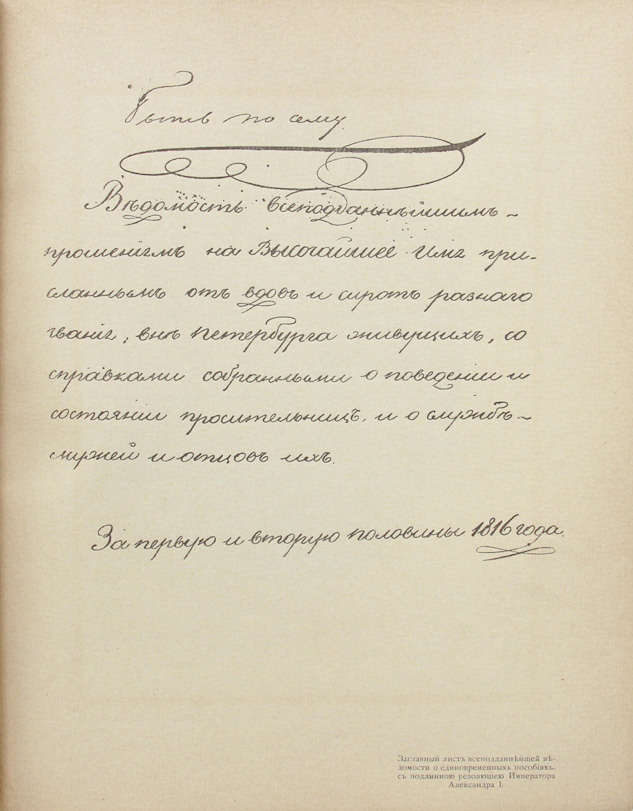 Быть по сему
Вѣдомость всеподданнѣйшимъ
прошеніямъ на Высочайшее Имя при-
сланнымъ отъ вдовъ и сиротъ разнаго
званія, внѣ Петербурга живущихъ, со
справками собранными о поведеніи и
состояніи просительницъ, и о службѣ
мужей и отцовъ ихъ.
За первую и вторую половины 1816 года.
Заглавный листъ всеподданнѣйшей вѣ-
домости о единовременныхъ пособіяхъ,
съ подлинною резолюціею Императора
Александра I.